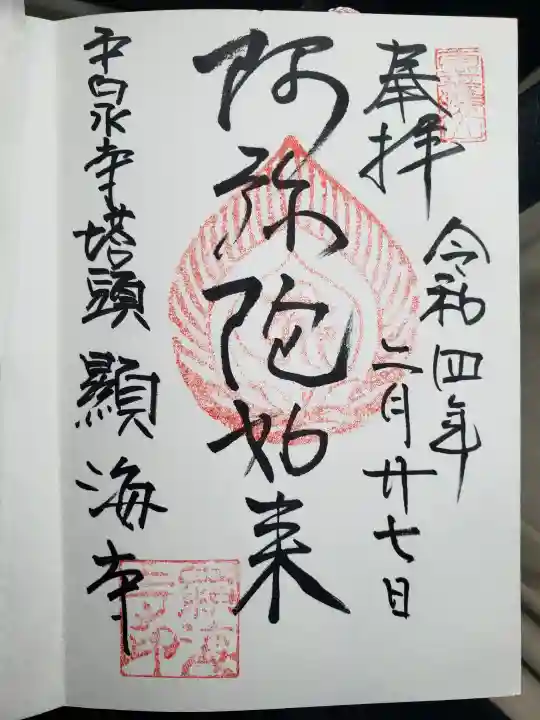 奉拝
令和四年
二月廿七日
阿弥陀如来
平泉寺塔頭 顯海寺